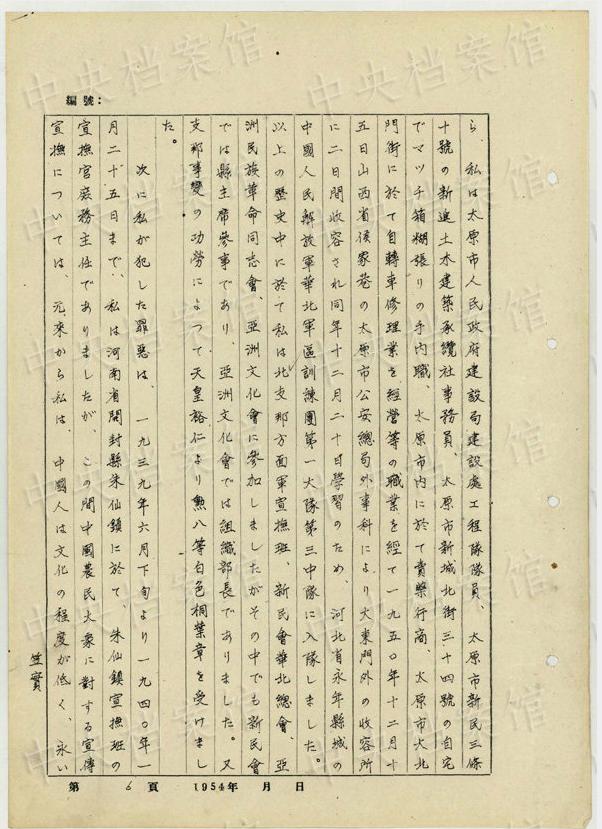 中央档案馆
編號:
ら、私は太原市人民政府建設局建設處工程隊隊員、太原市新民三條
十號の新建土木建築承纜社事務員、太原市新城北街三十四號の自宅
でマツチ箱糊張りの手内職、太原市内に於て賣藥行商、太原市大北
門街に於て自轉車修理業を經營等の職業を經て一九五〇年十二月十
五日山西省侯家巷の太原市公安總局外事科により大東門外の收容所
に二日間收容され同年十二月二十日學習のため、河北省永年縣城の
中國人民解放軍華北軍區訓練團第一大隊第三中隊に入隊しました。
以上の歴史中に於て私は北支那方面軍宣撫班、新民會華北總會、亞
洲民族革命同志會、亞洲文化會に參加しましたがその中でも新民會
では縣主席參事であり、亞洲文化會では組織部長でありました。又
支那事變の功勞によつて天皇裕仁より勲八等白色桐葉章を受けまし
た。
次に私が犯した罪惡は、一九三九年六月下旬より一九四〇年一
月二十五日まで、私は河南省開封縣朱仙鎮に於て、朱仙鎮宣撫班の
宣撫官庶務主任でありましたが、この間中國農民大衆に對する宣傳
宣撫については、元來から私は、中國人は文化の程度が低く、永い
笠實
第 6 頁 1954年 月 日